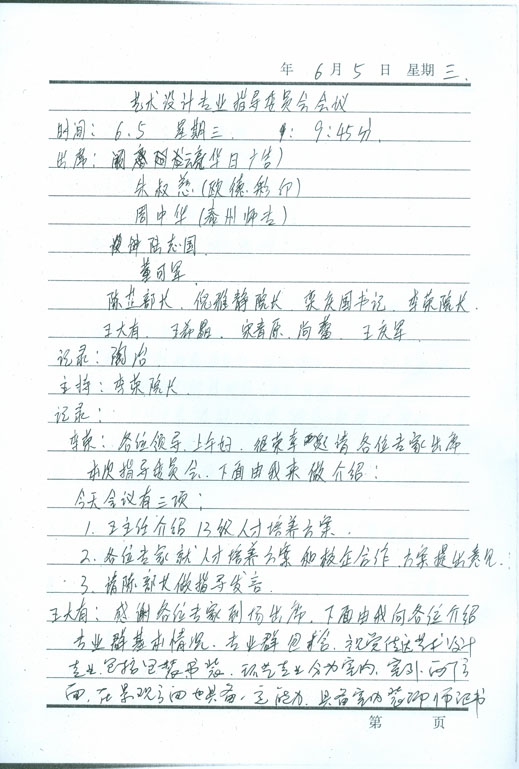 年 6 月 5 日 星期 三.
艺术设计专业指导委员会会议
时间: 6.5 星期三. 9:45分.
出席: 华日广告)
朱叔慈(欧德彩印)
周中华(泰州师专)
陆志国
董可军
陈芷部长. 倪雅静院长 栾庆国书记. 李荣院长.
王大有 宋青原. 尚蕾. 王庆军
记录: 陶冶
主持: 李荣院长
记录:
李荣: 各位领导. 上午好. 很荣幸 邀请各位专家出席
本次指导委员会. 下面由我来做介绍:
今天会议有三项:
1. 王主任介绍 13级人才培养方案.
2. 各位专家就人才培养方案和校企合作 方案提出意见.
3. 请陈部长做指导发言.
王大有: 感谢各位专家到场出席. 下面由我向各位介绍
专业群基本情况. 专业群包含: 视觉传达艺术设计
专业. 包括包装书装. 环艺专业分为室内. 室外 两个方
面. 在景观方面也具备一定能力. 具备室内装饰师证书
第 页